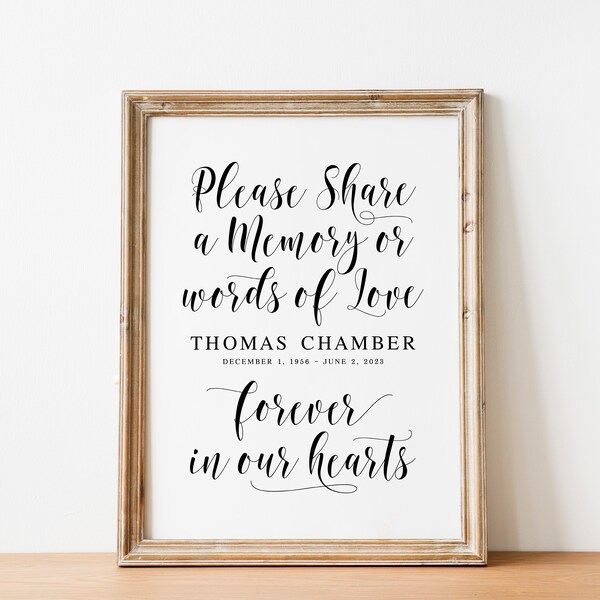 Please Share
a Memory or
words of Love
THOMAS CHAMBER
DECEMBER 1, 1956 – JUNE 2, 2023
forever
in our hearts